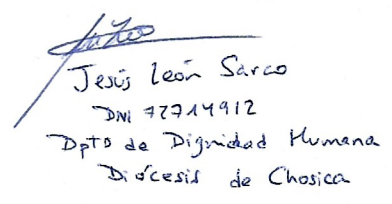 Jesús León Sarco
DNI 72714912
Dpto de Dignidad Humana
Diócesis de Chosica